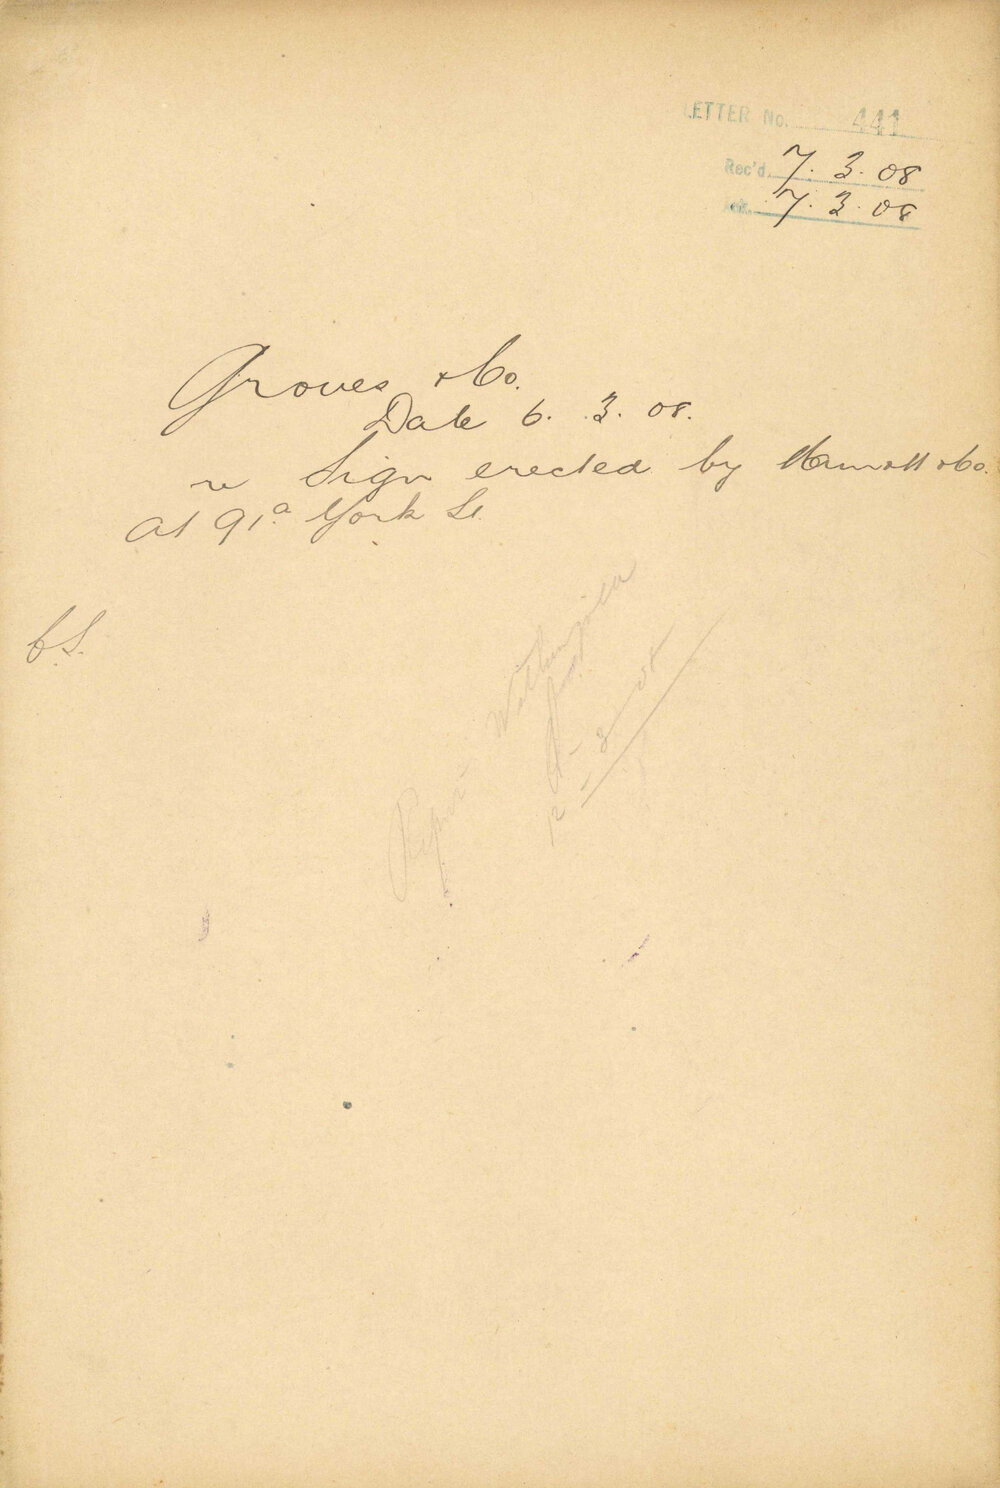 LETTER No. 441
Rec'd. 7. 3. 08
Ack. 7. 3. 08
Groves & Co.
Date 6. 3. 08.
re Sign erected by & Co.
At 91a York St
C.S.
12 - 3 - 08